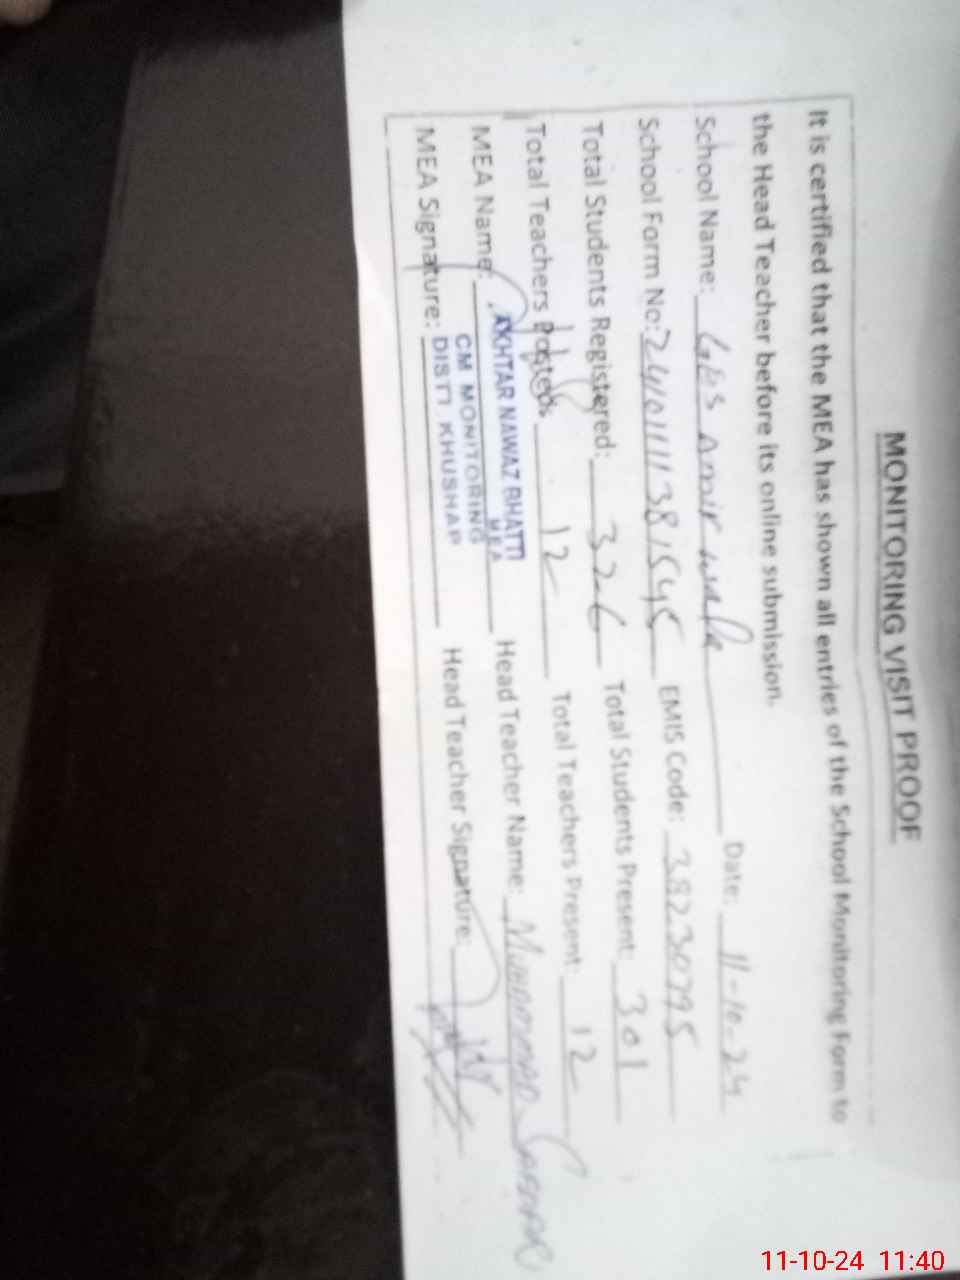 MONITORING VISIT PROOF
It is certified that the MEA has shown all entries of the School Monitoring Form to
the Head Teacher before its online submission.
School Name: GES Amir wala Date: 11-10-24
School Form No: EMIS Code: 38230795
Total Students Registered: 326 Total Students Present: 301
Total Teachers Posted: 12 Total Teachers Present: 12
MEA Name: AKHTAR NAWAZ BHATTI Head Teacher Name: Muhammad
MEA
CM MONITORING
MEA Signature: DISTT. KHUSHAP Head Teacher Signature:
11-10-24 11:40